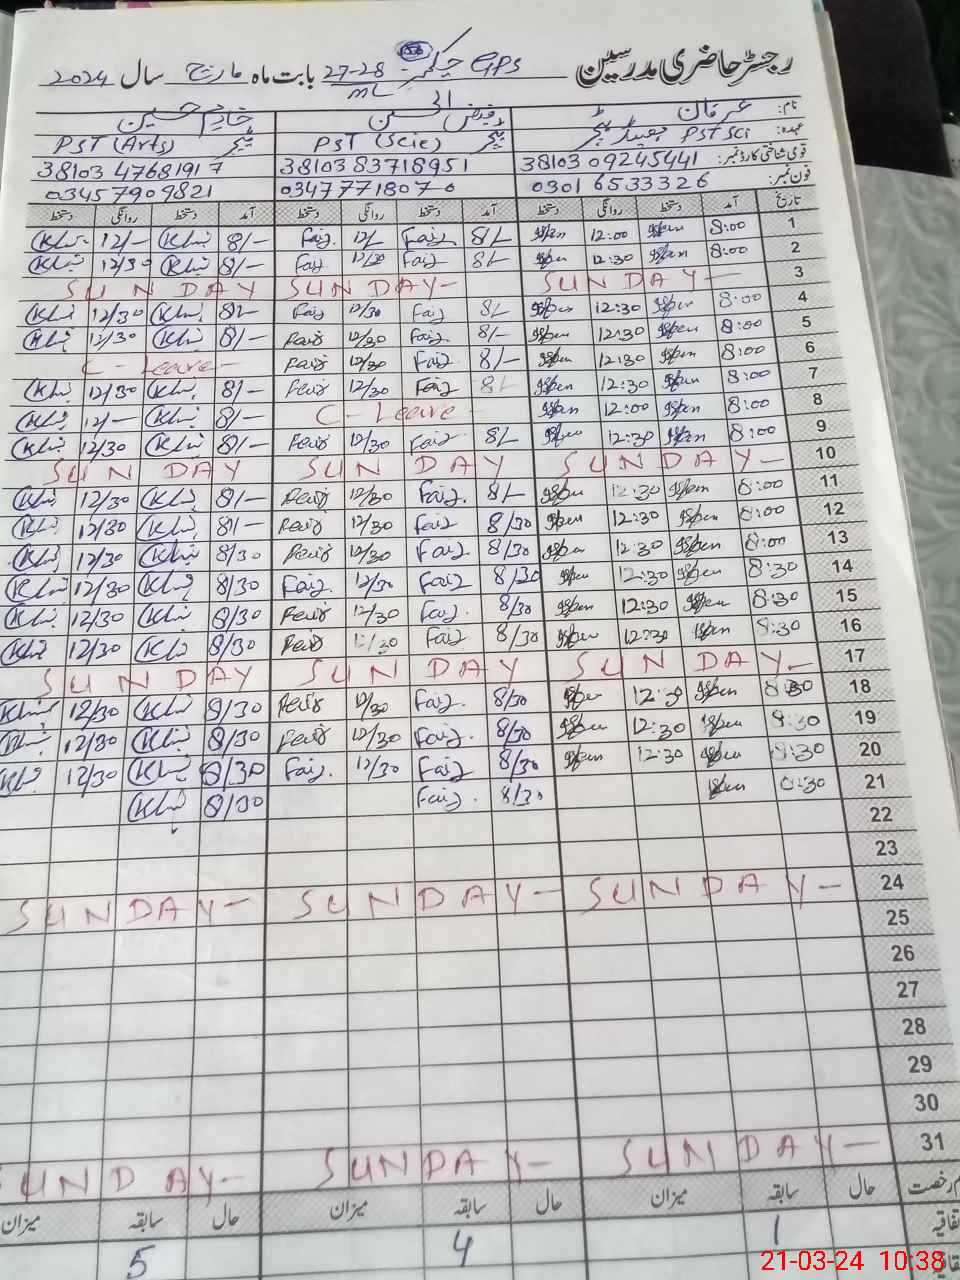 رجسٹر حاضری مدرسین GPS چک نمبر 27-28 ML بابت ماہ مارچ سال 2024
نام: عرفان فیض الحسن خادم حسین
عہدہ: PST SCI ہیڈ ٹیچر PST (Scie) ٹیچر PST (Arts) ٹیچر
قومی شناختی کارڈ نمبر: 3810309245441 3810383718951 3810347681917
فون نمبر: 03016533326 03477718070 03457909821
تاریخ آمد دستخط روانگی دستخط آمد دستخط روانگی دستخط آمد دستخط روانگی دستخط
1 8:00 12:00 8/- Faiz 12/- Faiz. 8/- 12/-
2 8:00 12:30 8/- Faiz 12/30 Faiz 8/- 12/30
3 SUNDAY- SUNDAY- SUNDAY
4 8:00 12:30 8/- Faiz 12/30 Faiz 8/- 12/30
5 8:00 12:30 8/- Faiz 12/30 8/- 12/30
6 8:00 12:30 8/- Faiz 12/30 C-Leave-
7 8:00 12:30 8/- Faiz 12/30 8/- 12/30
8 8:00 12:00 C-Leave- 8/- 12/-
9 8:00 12:30 8/- Faiz 12/30 8/- 12/30
10 SUNDAY- SUNDAY SUNDAY
11 8:00 12:30 8/- Faiz. 12/30 8/- 12/30
12 8:00 12:30 8/30 Faiz 12/30 8/- 12/30
13 8:00 12:30 8/30 Faiz 12/30 8/30 12/30
14 8:30 12:30 8/30 Faiz 12/30 Faiz. 8/30 12/30
15 8:30 12:30 8/30 Faiz. 12/30 8/30 12/30
16 8:30 12:30 8/30 Faiz 12/30 8/30 12/30
17 SUNDAY- SUNDAY SUNDAY
18 8:30 8/30 Faiz. 12/30 8/30 12/30
19 8:30 12:30 8/30 Faiz. 12/30 8/30 12/30
20 8:30 12:30 8/30 Faiz 12/30 Faiz. 8/30 12/30
21 8:30 8/30 Faiz. 8/30
22
23
24 SUNDAY- SUNDAY- SUNDAY-
25
26
27
28
29
30
31 SUNDAY- SUNDAY- SUNDAY-
رخصت حال سابقہ میزان حال سابقہ میزان حال سابقہ میزان
1 4 5
21-03-24 10:38